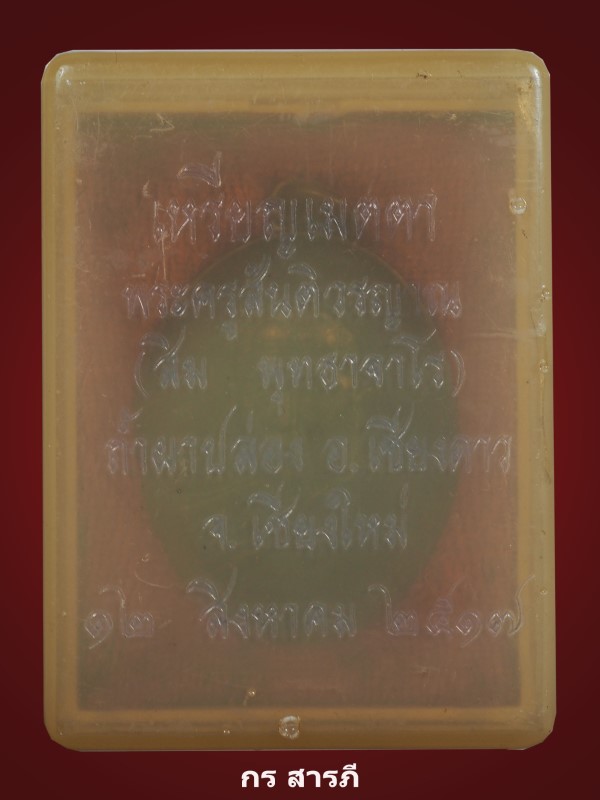 เหรียญเมตตา
พระครูสันติวรญาณ
(สิม พุทธาจาโร)
ถ้ำผาปล่อง อ.เชียงดาว
จ.เชียงใหม่
๑๒ สิงหาคม ๒๕๑๗
กร สารภี